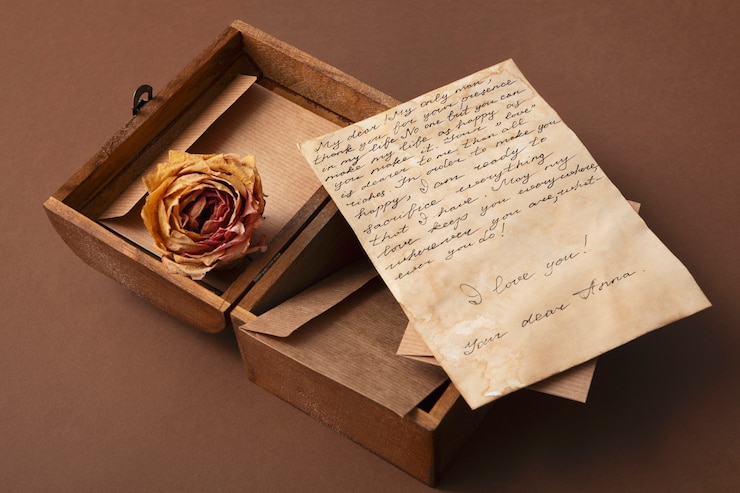 My dear! My only man,
thank you for your presence
in my life. No one but you can
make my life as happy as
you make it. Your "love"
is dearer to me than all
riches. In order to make you
happy, I am ready to
sacrifice everything
that I have. May my
love keeps you everywhere,
wherever you are, what-
ever you do!
I love you!
Your dear Anna.